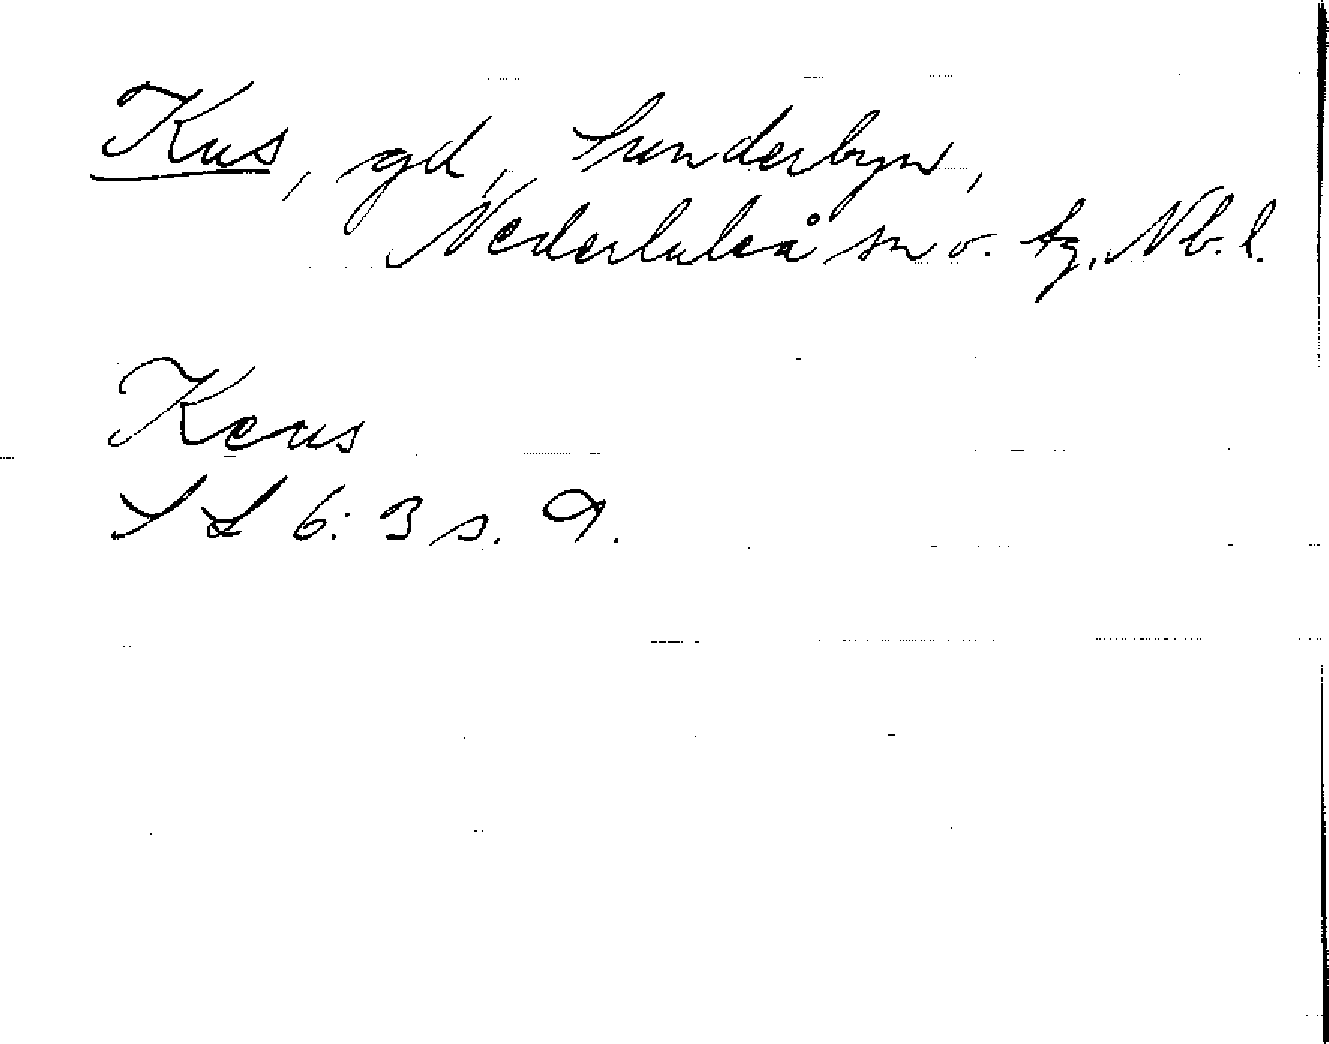 Kus, gd, Sunderbyn,
Nederluleå sn o. tg, Nb. l.
Keus
SL 6:3 s. 9.